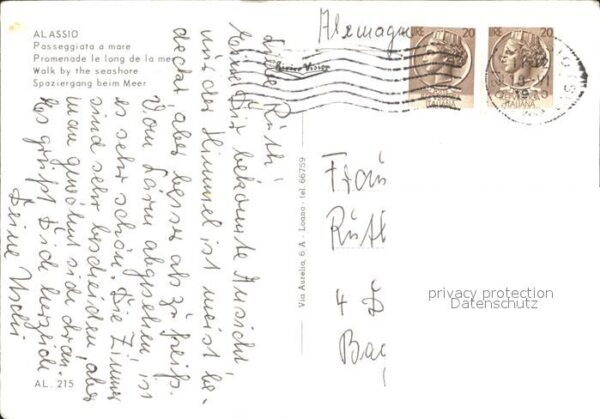 ALASSIO
Passeggiata a mare
Promenade le long de la mer
Walk by the seashore
Spaziergang beim Meer
Alemagna
LIRE 20
LIRE 20
ITALIANA
ITALIANA
Liebe Ruth!
Eine Dir bekannte Ansicht,
nur der Himmel ist meist be-
deckt, aber besser als zu heiß.
Vom Lärm abgesehen ist
es sehr schön. Die Zimmer
sind sehr bescheiden, aber
man gewöhnt sich dran.
Es grüßt Dich herzlich
Deine Uschi
Via Aurelia, 6 A - Loano - tel. 66759
Frau
Ruth
4
Bac
privacy protection
Datenschutz
AL. 215